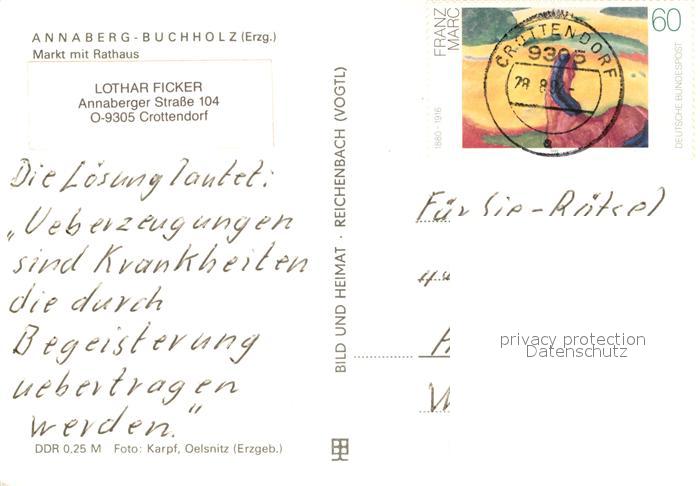 ANNABERG-BUCHHOLZ (Erzg.)
Markt mit Rathaus
LOTHAR FICKER
Annaberger Straße 104
O-9305 Crottendorf
Die Lösung lautet:
„Ueberzeugungen
sind Krankheiten
die durch
Begeisterung
uebertragen
werden."
DDR 0,25 M Foto: Karpf, Oelsnitz (Erzgeb.)
BILD UND HEIMAT · REICHENBACH (VOGTL)
FRANZ
MARC
1880-1916
60
DEUTSCHE BUNDESPOST
CROTTENDORF
9305
a
Für Sie-Rätsel
privacy protection
Datenschutz